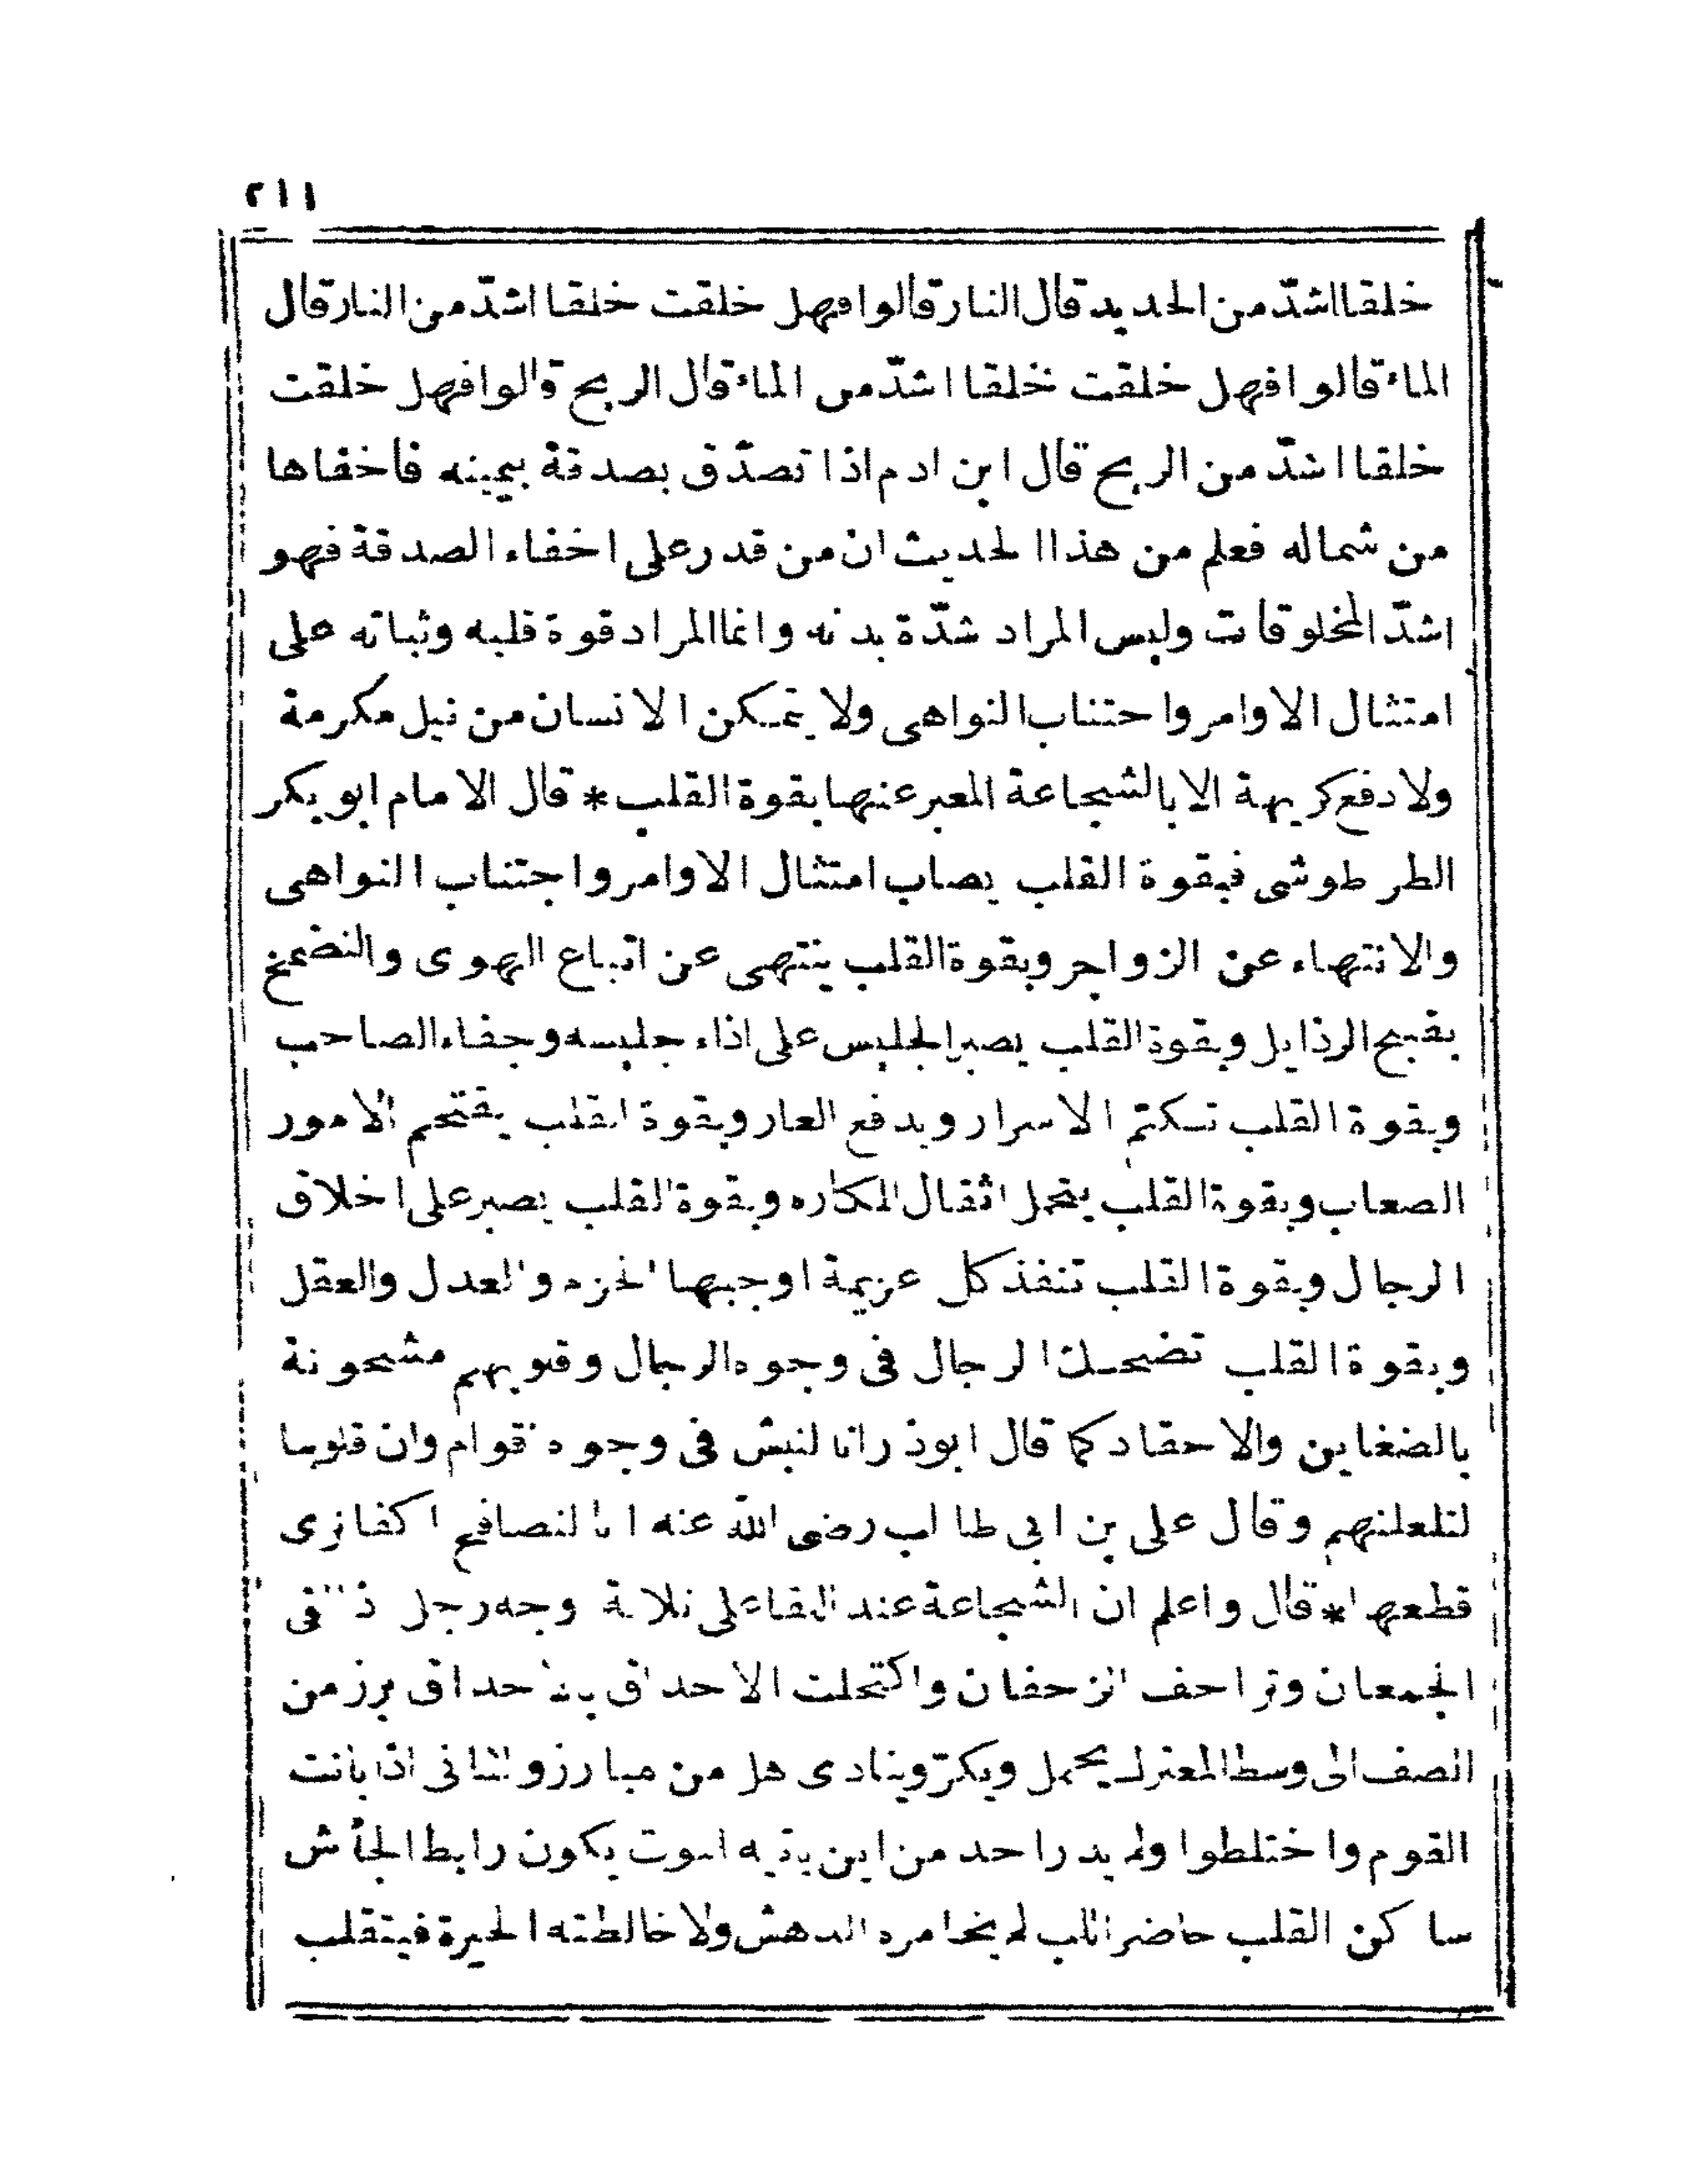 ٢١١
خلقا اشدّ من الحديد قال النار قالوا فهل خلقت خلقا اشدّ من النار قال
الماء قالوا فهل خلقت خلقا اشدّ من الماء قال الريح قالوا فهل خلقت
خلقا اشدّ من الريح قال ابن ادم اذا تصدّق بصدقة بيمينه فأخفاها
من شماله فعلم من هذا الحديث ان من قدر على اخفاء الصدقة فهو
اشدّ المخلوقات وليس المراد شدّة بدنه وانما المراد قوة قلبه وثباته على
امتثال الاوامر واجتناب النواهى ولا يتمكن الانسان من نيل مكرمة
ولا دفع كريهة الا بالشجاعة المعبر عنها بقوة القلب * قال الامام ابو بكر
الطرطوشى فبقوة القلب يصاب امتثال الاوامر واجتناب النواهى
والانتهاء عن الزواجر وبقوة القلب ينتهى عن اتباع الهوى والتضمخ
بقبيح الرذايل وبقوة القلب يصبر الجليس على اذاء جليسه وجفاء الصاحب
وبقوة القلب تكتم الاسرار ويدفع العار وبقوة القلب يقتحم الامور
الصعاب وبقوة القلب يتحمل اثقال المكاره وبقوة القلب يصبر على اخلاق
الرجال وبقوة القلب تنفذ كل عزيمة اوجبها الحزم والعدل والعقل
وبقوة القلب تضحك الرجال فى وجوه الرجال وقلوبهم مشحونة
بالضغاين والاحقاد كما قال ابوذر انا لنبش فى وجوه اقوام وان قلوبنا
لتلعلنهم وقال على بن ابى طالب رضى الله عنه انا لنصافح اكفا نرى
قطعها * قال واعلم ان الشجاعة عند اللقاء على ثلاثة وجه رجل اذا التقى
الجمعان وتزاحف الزحفان واكتحلت الاحداق بالاحداق برز من
الصف الى وسط المعترك يحمل ويكرّ وينادى هل من مبارز والثانى اذا
القوم واختلطوا ولم يدر احد من اين يأتيه الموت يكون رابط الجأش
ساكن القلب حاضر اللب لم يخامره الدهش ولا خالطته الحيرة فيتقلب